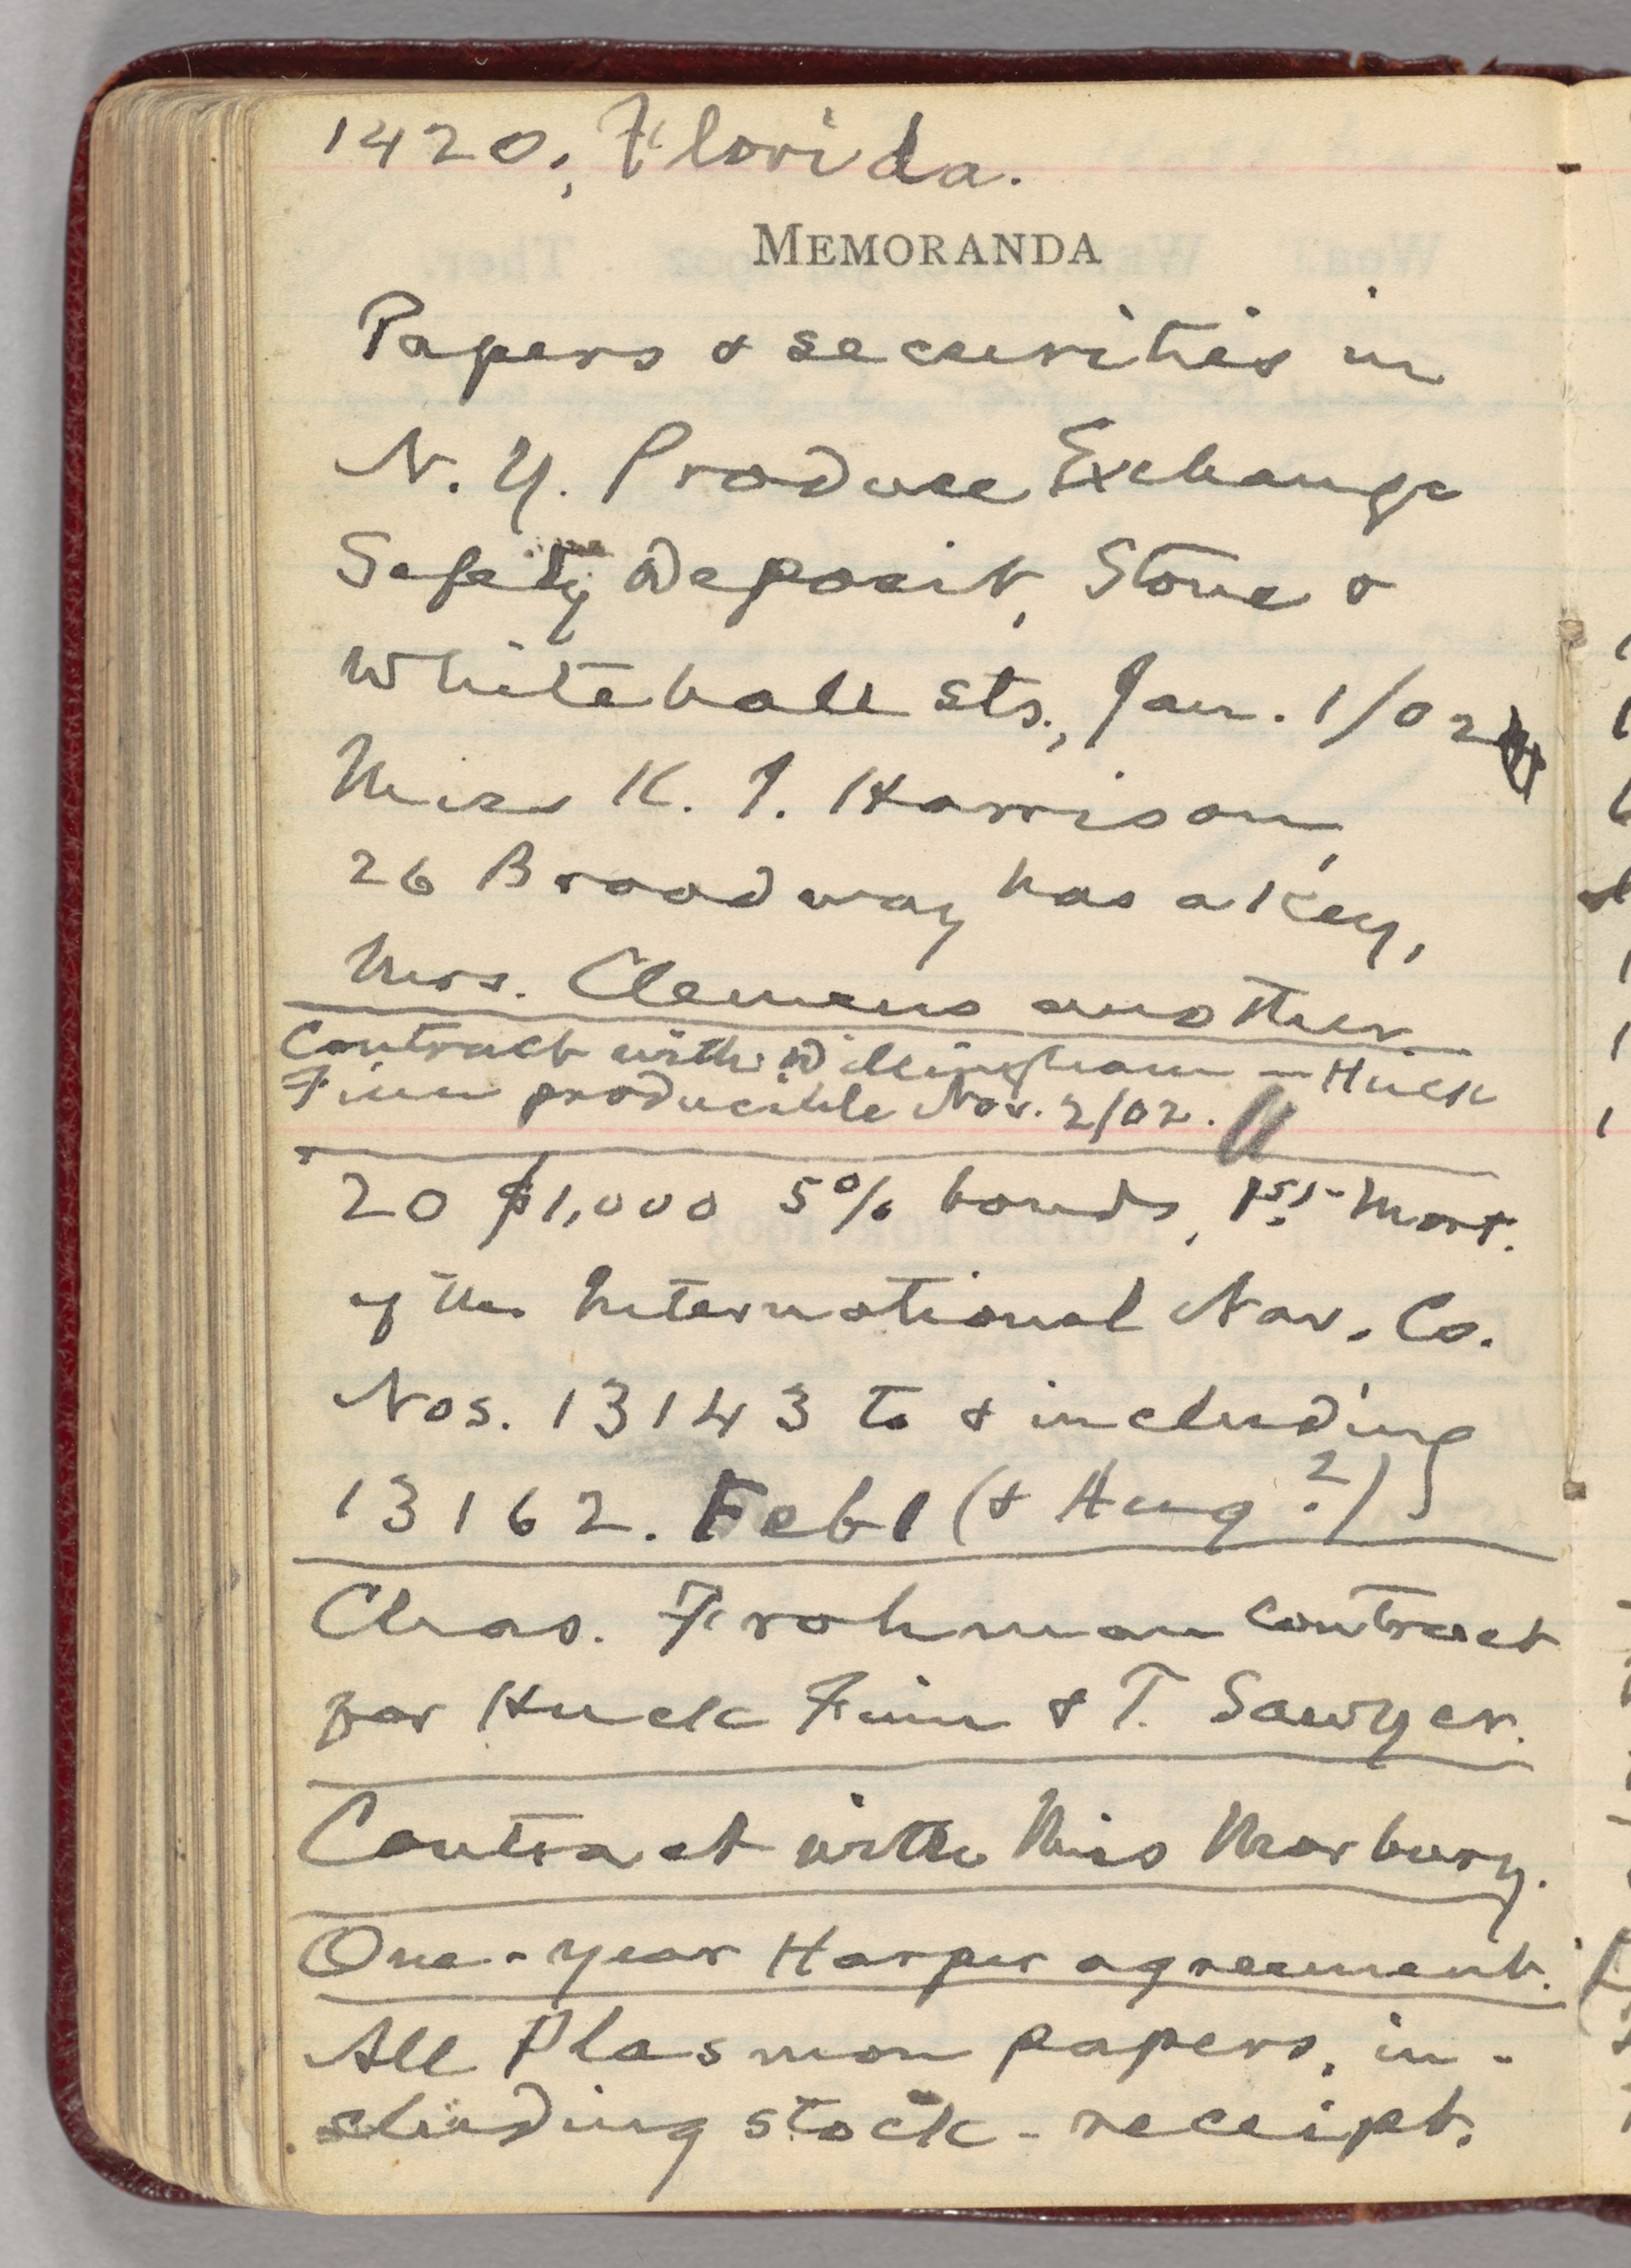 1420, Florida.
MEMORANDA
Papers & securities in
N. Y. Produce Exchange
Safety Deposit, Stone &
Whitehall sts., Jan. 1/02
Miss K. I. Harrison,
26 Broadway has a key,
Mrs. Clemens another.
Contract with Dillingham — Huck
Finn producible Nov. 2/02.
20 $1,000 5% bonds, 1st Mort.
of the International Nav. Co.
Nos. 13143 to & including
13162. Feb 1 (& Aug ?)
Chas. Frohman contract
for Huck Finn & T. Sawyer.
Contract with Miss Marbury.
One-year Harper agreement.
All Plasmon papers, in-
cluding stock-receipt.